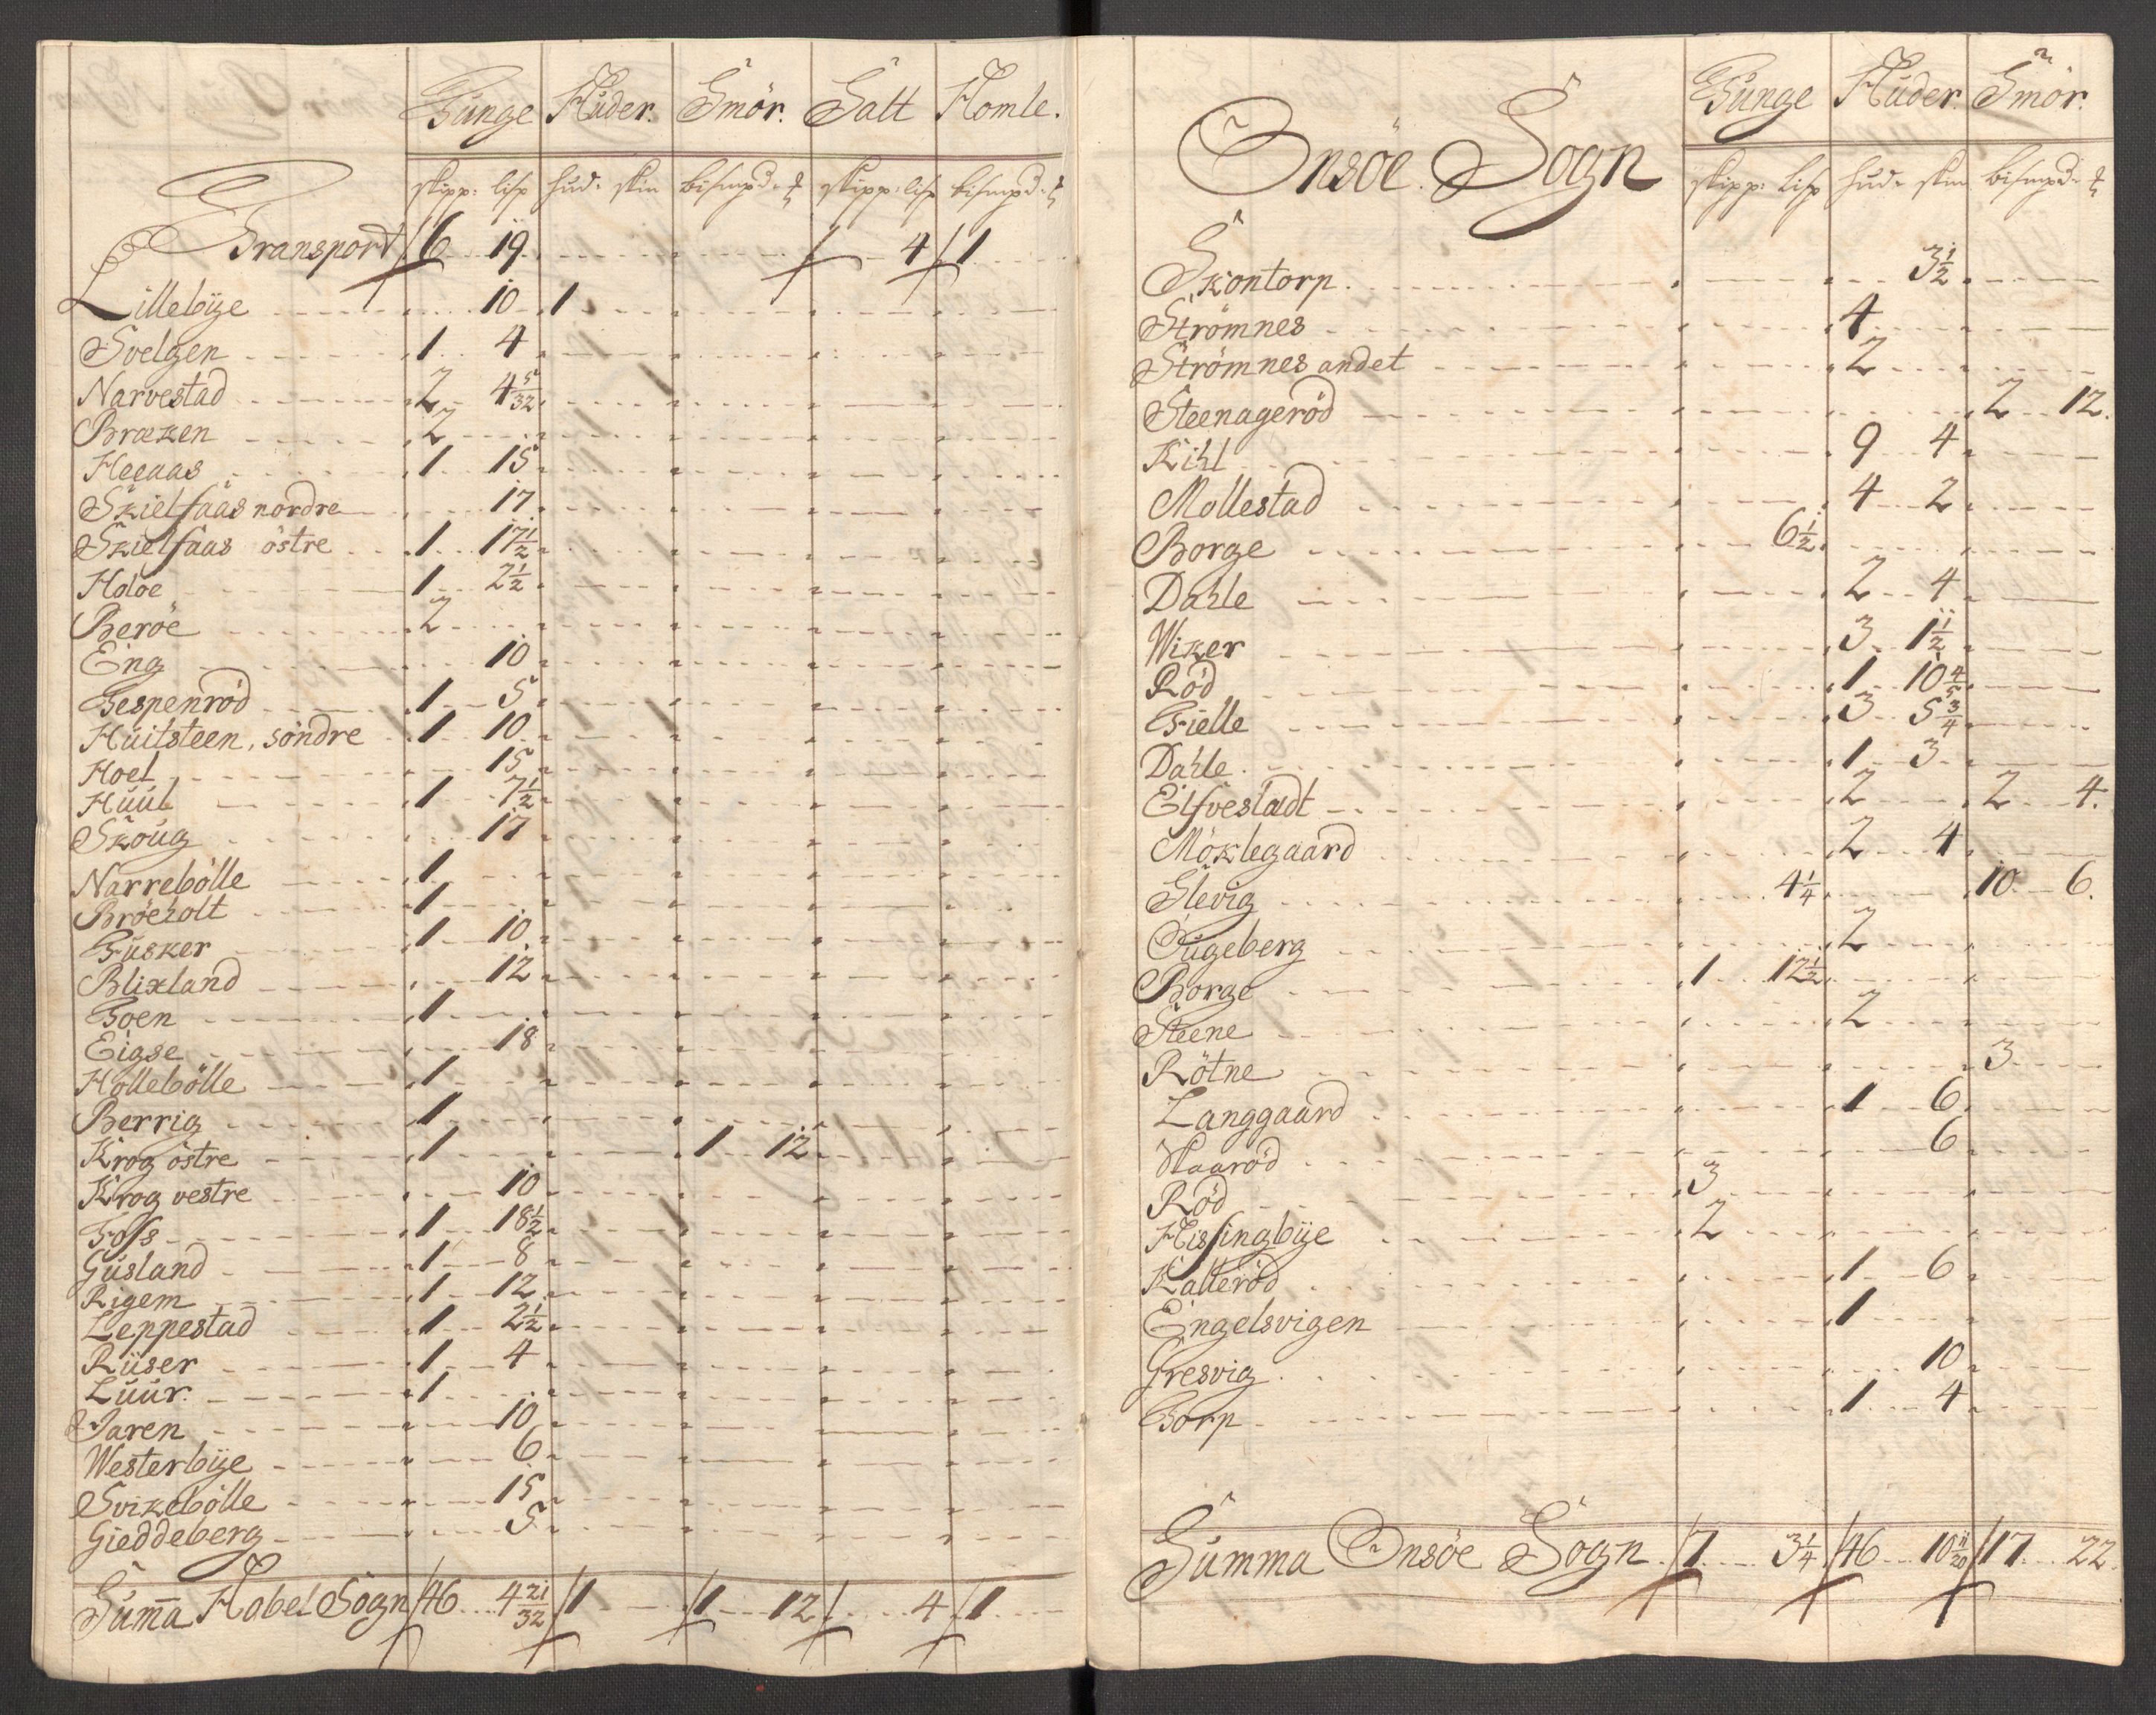 Tunge Huder. Smör. Salt Homle.
skipp: lisp hud. skin bismpd. ℔ skipp: lisp bismpd. ℔
Transport 6 19 4 1
Lillebÿe 10 1
Svelgen 1 4
Narvestad 2 4 5/32
Bræken 2
Heeaas 1 15
Skielfaas nordre 17
Skielfaas östre 1 17 1/2
Holöe 1 2 1/2
Beröe 2
Eng 10
Tespenröd 1 5
Huitsteen, söndre 1 10
Hoel 15
Huul 1 7 1/2
Skoug 17
Narrebölle 1
Bröeholt 1
Tusker 1 10
Blixland 12
Toen 1
Eigse 18
Hollebölle 1
Berrig 1
Krog östre 1 1 12
Krog vestre 10
Foss 1 18 1/2
Gusland 1 8
Rigem 1 12
Leppestad 1 2 1/2
Riiser 1 4
Luur. 1
Jaren 10
Westerbÿe 6
Svikebölle 15
Gieddeberg 5
Sum̄a Hobel Sogn 46 4 21/32 1 1 12 4 1
Onsöe Sogn Tunge Huder. Smör.
skipp: lisp hud. skin bismpd. ℔
Skontorp. 3 1/2
Strömnes 4
Strömnes andet 2
Steenageröd 2 12.
Kihl 9 4
Mollestad 4 2
Borge 6 1/2
Dahle 2 4
Wiker 3 1 1/2
Röd 1 10 4/5
Fielle 3 5 3/4
Dahle. 1 3
Elfvestadt 2 2 4.
Möklegaard 2 4
Slevig 4 1/4 10 6.
Ougeberg 2
Borge 1 12 1/2
Steene 2
Rötne 3
Langgaard 1 6
Haaröd 6
Röd 3
Hissingbÿe 2
Kalleröd 1 6
Engelsvigen 1
Gresvig. 10
Torp 1 4
Summa Onsöe Sogn. 7 3 1/4 46 10 11/20 17 22.